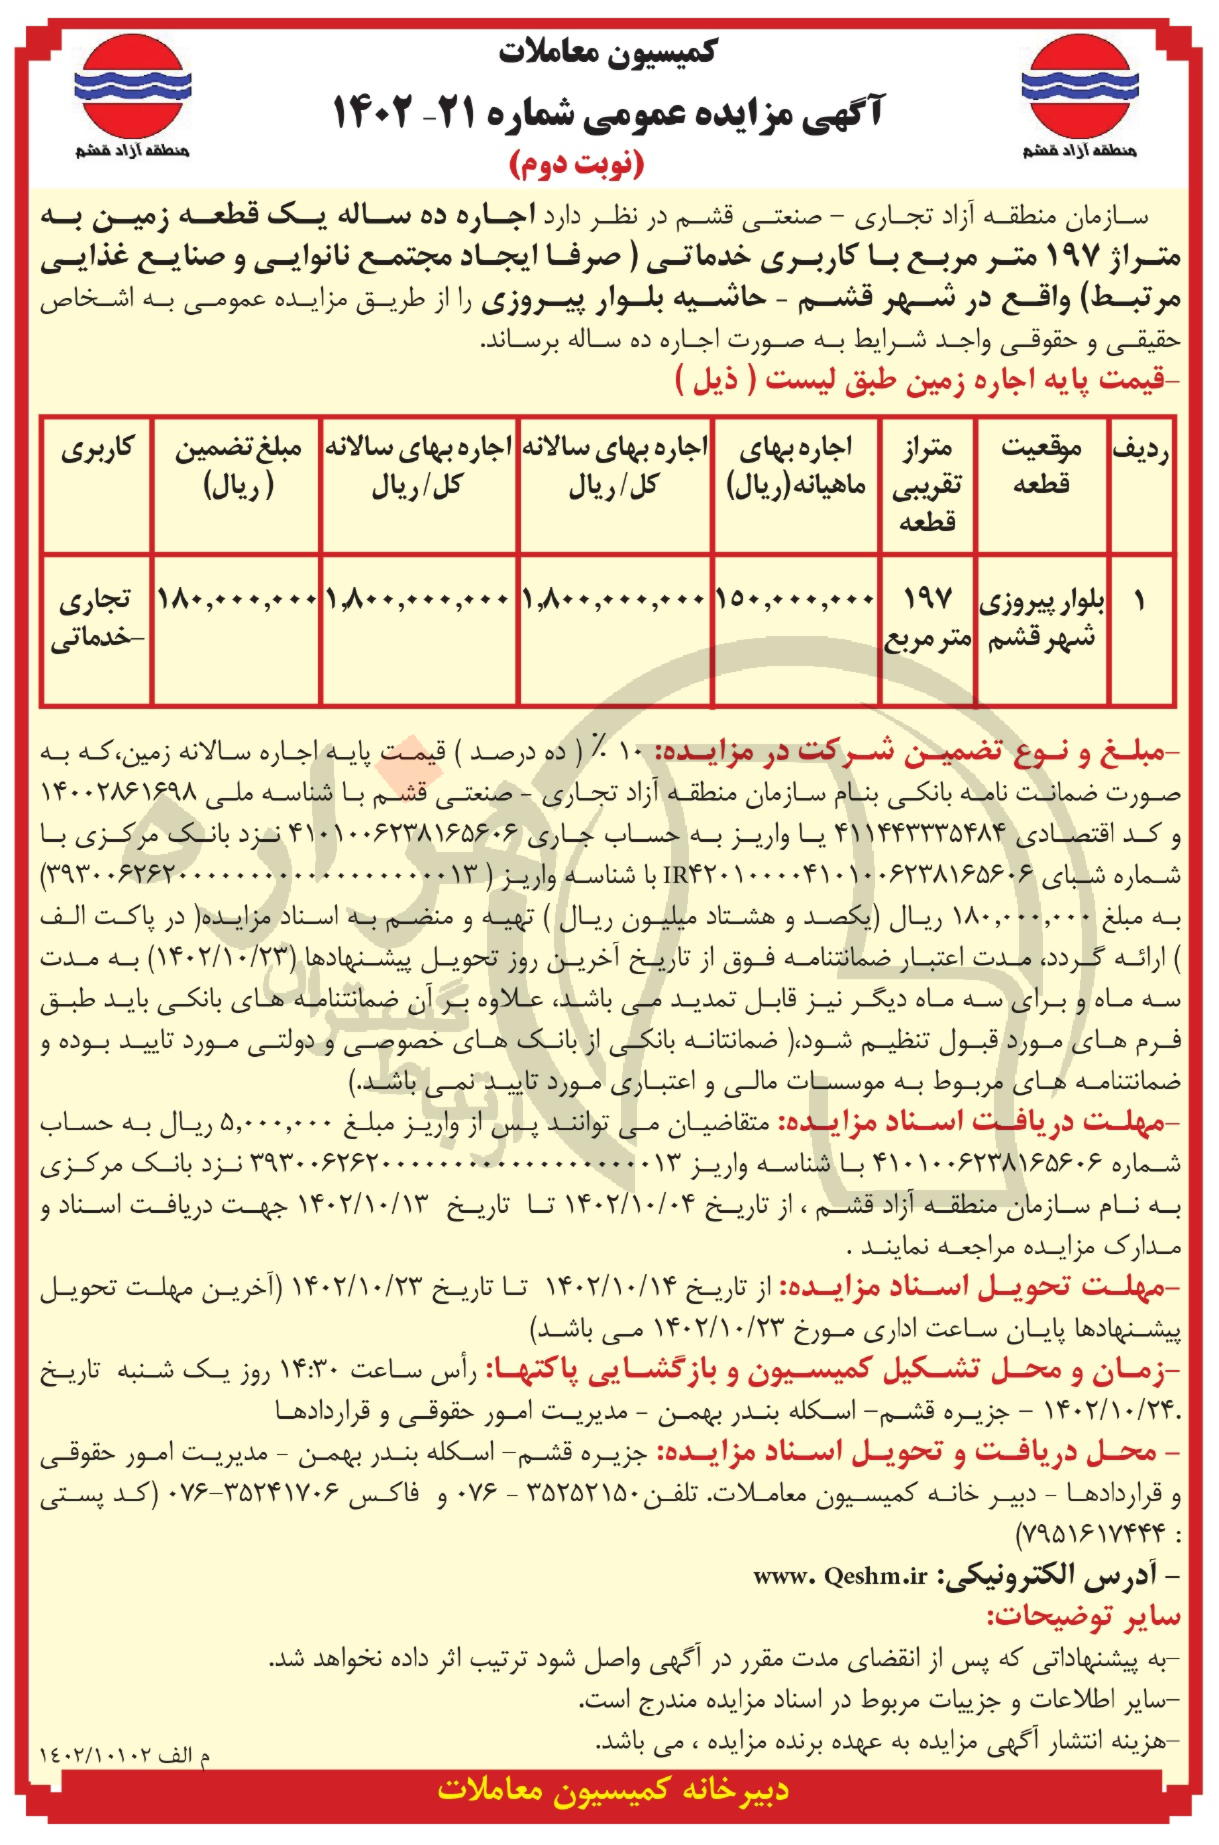 کمیسیون معاملات
آگهی مزایده عمومی شماره ۲۱- ۱۴۰۲
(نوبت دوم)
منطقه آزاد قشم
منطقه آزاد قشم
سازمان منطقه آزاد تجاری - صنعتی قشم در نظر دارد اجاره ده ساله یک قطعه زمین به
متراژ ۱۹۷ متر مربع با کاربری خدماتی ( صرفا ایجاد مجتمع نانوایی و صنایع غذایی
مرتبط) واقع در شهر قشم - حاشیه بلوار پیروزی را از طریق مزایده عمومی به اشخاص
حقیقی و حقوقی واجد شرایط به صورت اجاره ده ساله برساند.
-قیمت پایه اجاره زمین طبق لیست ( ذیل )
ردیف
موقعیت
قطعه
متراز
تقریبی
قطعه
اجاره بهای
ماهیانه(ریال)
اجاره بهای سالانه
کل/ ریال
اجاره بهای سالانه
کل/ ریال
مبلغ تضمین
( ریال)
کاربری
۱
بلوار پیروزی
شهر قشم
۱۹۷
متر مربع
۱۵۰,۰۰۰,۰۰۰
۱,۸۰۰,۰۰۰,۰۰۰
۱,۸۰۰,۰۰۰,۰۰۰
۱۸۰,۰۰۰,۰۰۰
تجاری
-خدماتی
-مبلغ و نوع تضمین شرکت در مزایده: ۱۰ ٪ ( ده درصد ) قیمت پایه اجاره سالانه زمین،که به
صورت ضمانت نامه بانکی بنام سازمان منطقه آزاد تجاری - صنعتی قشم با شناسه ملی ۱۴۰۰۲۸۶۱۶۹۸
و کد اقتصادی ۴۱۱۴۴۳۳۳۵۴۸۴ یا واریز به حساب جاری ۴۱۰۱۰۰۶۲۳۸۱۶۵۶۰۶ نزد بانک مرکزی با
شماره شبای IR۴۲۰۱۰۰۰۰۴۱۰۱۰۰۶۲۳۸۱۶۵۶۰۶ با شناسه واریز ( ۳۹۳۰۰۶۲۶۲۰۰۰۰۰۰۰۰۰۰۰۰۰۰۰۰۰۰۰۱۳)
به مبلغ ۱۸۰,۰۰۰,۰۰۰ ریال (یکصد و هشتاد میلیون ریال ) تهیه و منضم به اسناد مزایده( در پاکت الف
) ارائه گردد، مدت اعتبار ضمانتنامه فوق از تاریخ آخرین روز تحویل پیشنهادها (۱۴۰۲/۱۰/۲۳) به مدت
سه ماه و برای سه ماه دیگر نیز قابل تمدید می باشد، علاوه بر آن ضمانتنامه های بانکی باید طبق
فرم های مورد قبول تنظیم شود،( ضمانتانه بانکی از بانک های خصوصی و دولتی مورد تایید بوده و
ضمانتنامه های مربوط به موسسات مالی و اعتباری مورد تایید نمی باشد.)
-مهلت دریافت اسناد مزایده: متقاضیان می توانند پس از واریز مبلغ ۵,۰۰۰,۰۰۰ ریال به حساب
شماره ۴۱۰۱۰۰۶۲۳۸۱۶۵۶۰۶ با شناسه واریز ۳۹۳۰۰۶۲۶۲۰۰۰۰۰۰۰۰۰۰۰۰۰۰۰۰۰۰۰۱۳ نزد بانک مرکزی
به نام سازمان منطقه آزاد قشم ، از تاریخ ۱۴۰۲/۱۰/۰۴ تا تاریخ ۱۴۰۲/۱۰/۱۳ جهت دریافت اسناد و
مدارک مزایده مراجعه نمایند .
-مهلت تحویل اسناد مزایده: از تاریخ ۱۴۰۲/۱۰/۱۴ تا تاریخ ۱۴۰۲/۱۰/۲۳ (آخرین مهلت تحویل
پیشنهادها پایان ساعت اداری مورخ ۱۴۰۲/۱۰/۲۳ می باشد)
-زمان و محل تشکیل کمیسیون و بازگشایی پاکتها: رأس ساعت ۱۴:۳۰ روز یک شنبه تاریخ
.۱۴۰۲/۱۰/۲۴ - جزیره قشم- اسکله بندر بهمن - مدیریت امور حقوقی و قراردادها
- محل دریافت و تحویل اسناد مزایده: جزیره قشم- اسکله بندر بهمن - مدیریت امور حقوقی
و قراردادها - دبیر خانه کمیسیون معاملات. تلفن۳۵۲۵۲۱۵۰ - ۰۷۶ و فاکس ۳۵۲۴۱۷۰۶-۰۷۶ (کد پستی
: ۷۹۵۱۶۱۷۴۴۴)
- آدرس الکترونیکی: www. Qeshm.ir
سایر توضیحات:
-به پیشنهاداتی که پس از انقضای مدت مقرر در آگهی واصل شود ترتیب اثر داده نخواهد شد.
-سایر اطلاعات و جزییات مربوط در اسناد مزایده مندرج است.
-هزینه انتشار آگهی مزایده به عهده برنده مزایده ، می باشد.
م الف ۱۴۰۲/۱۰۱۰۲
دبیرخانه کمیسیون معاملات
هزاره
گستران
ارتباط